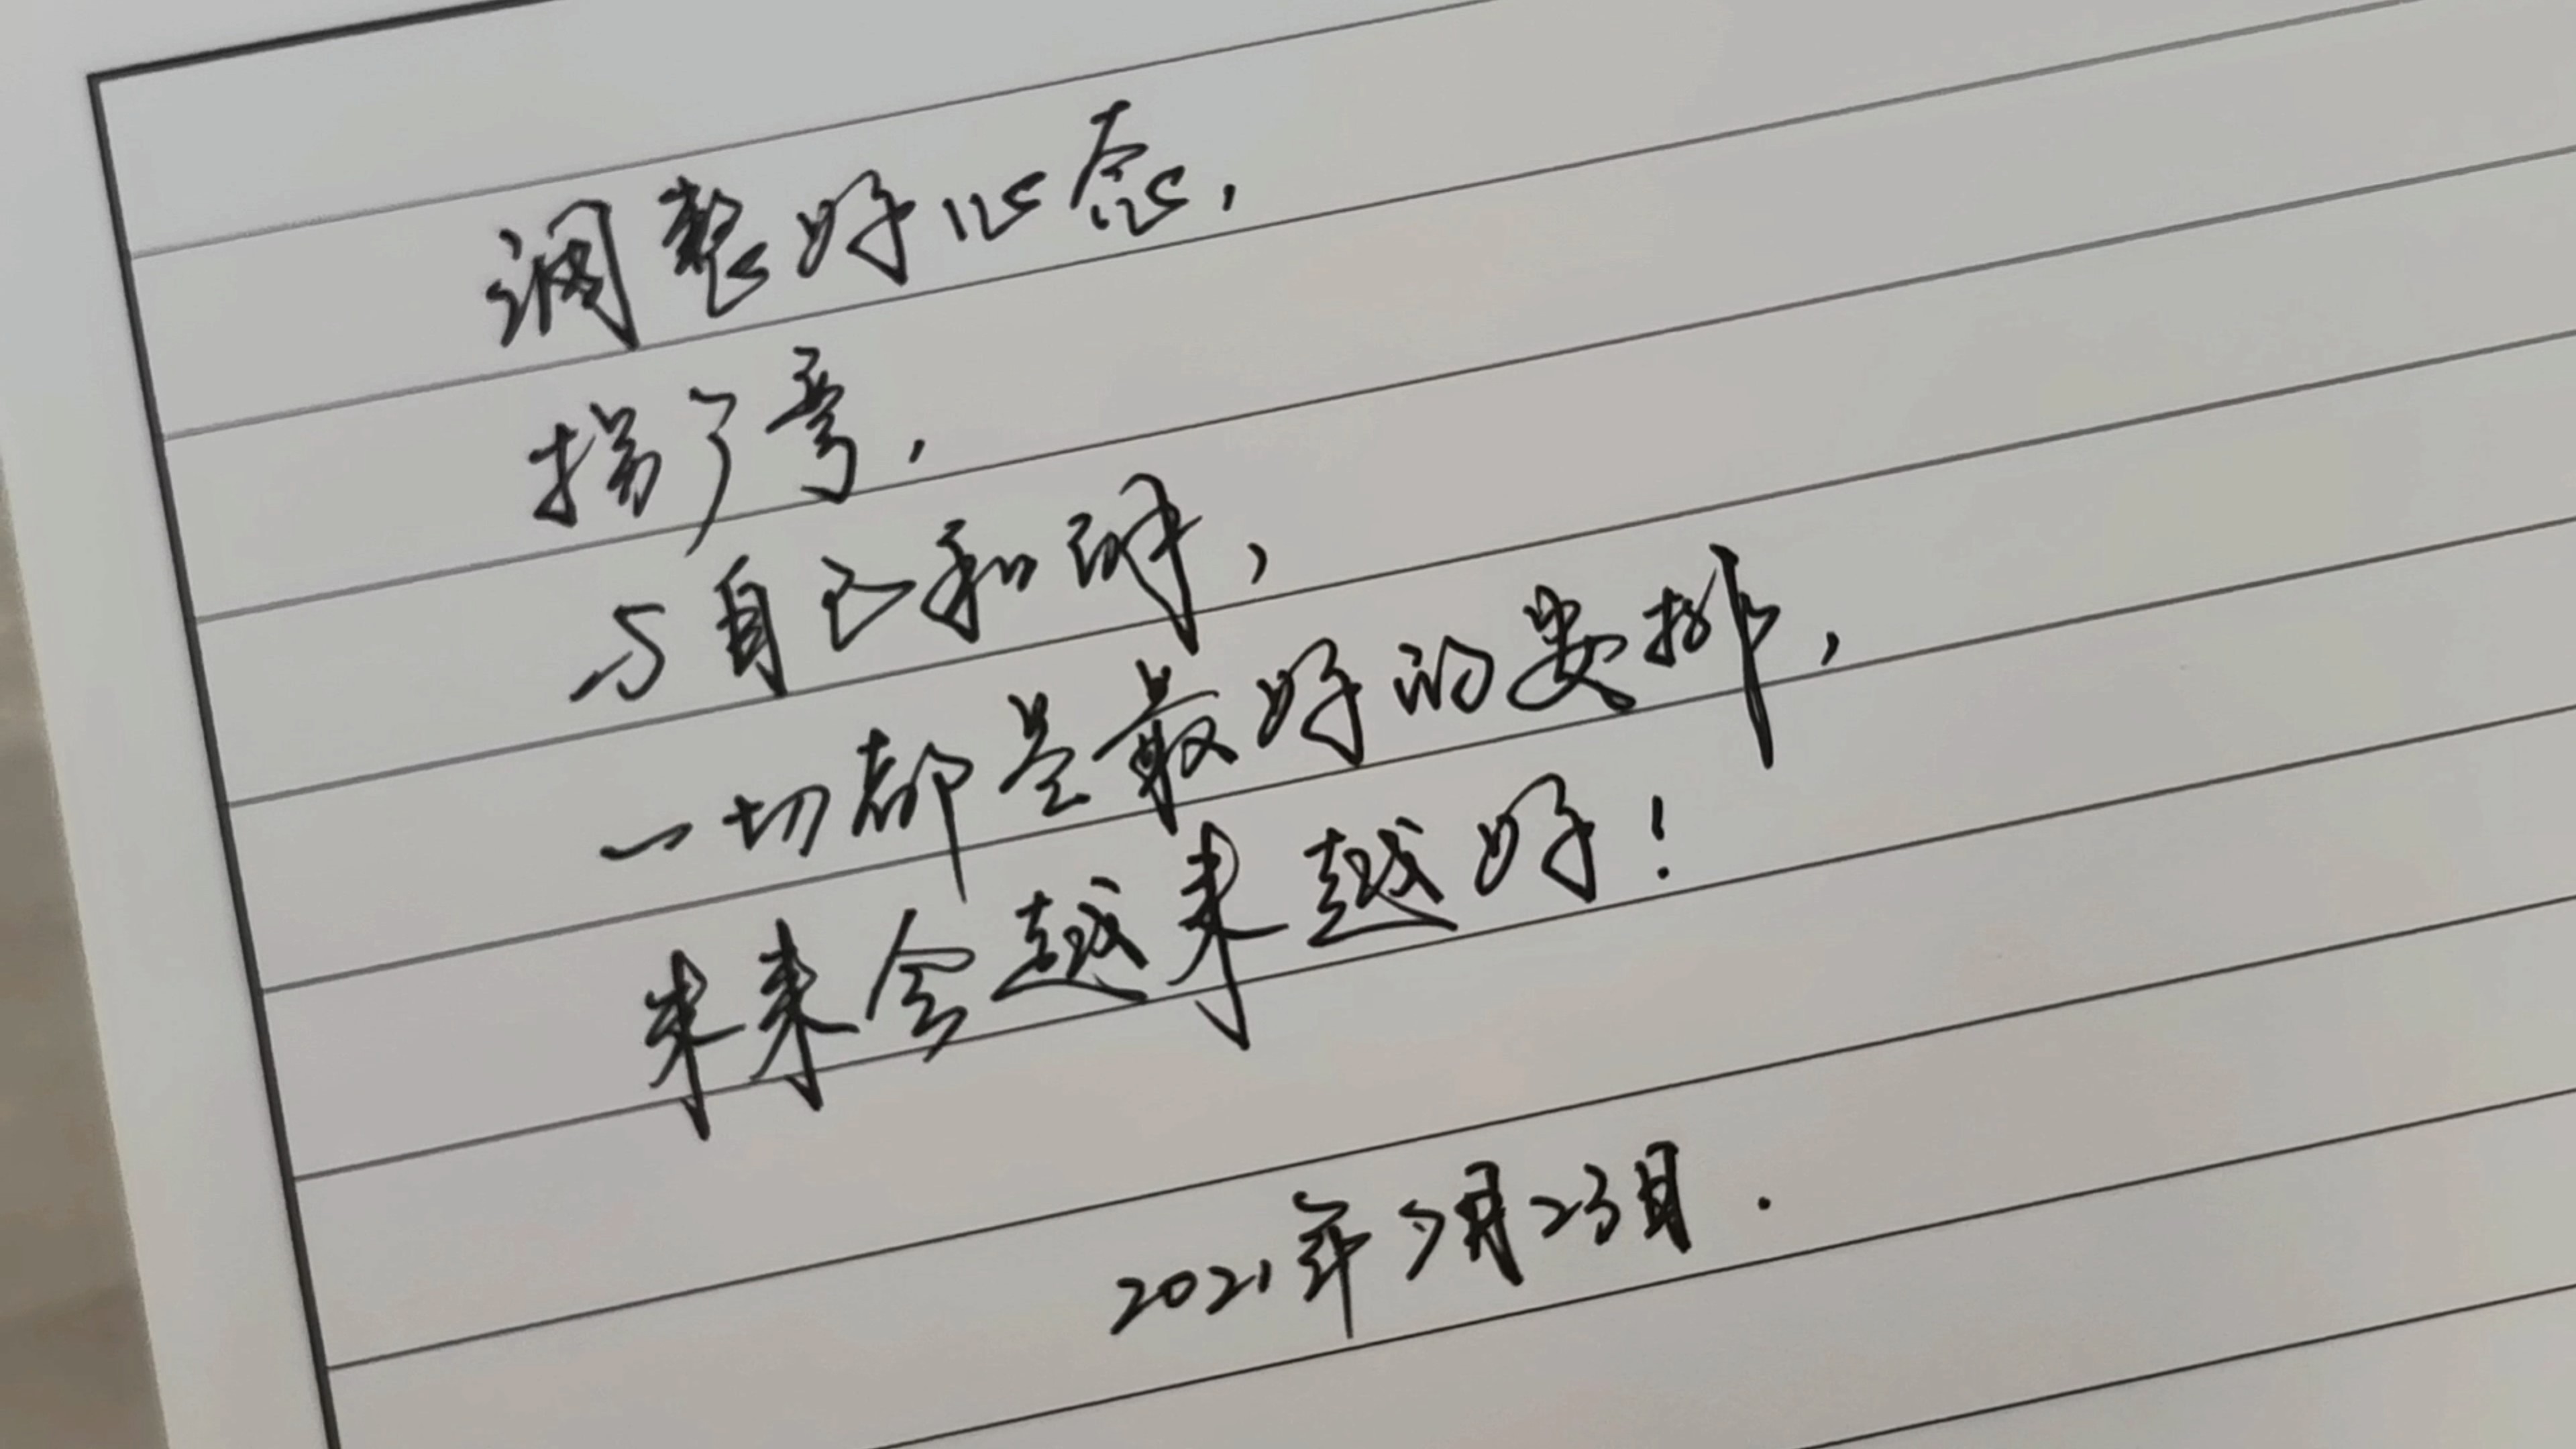 调整好心念，
拐了弯，
与自己和解，
一切都是最好的安排，
未来会越来越好！
2021年3月23日.